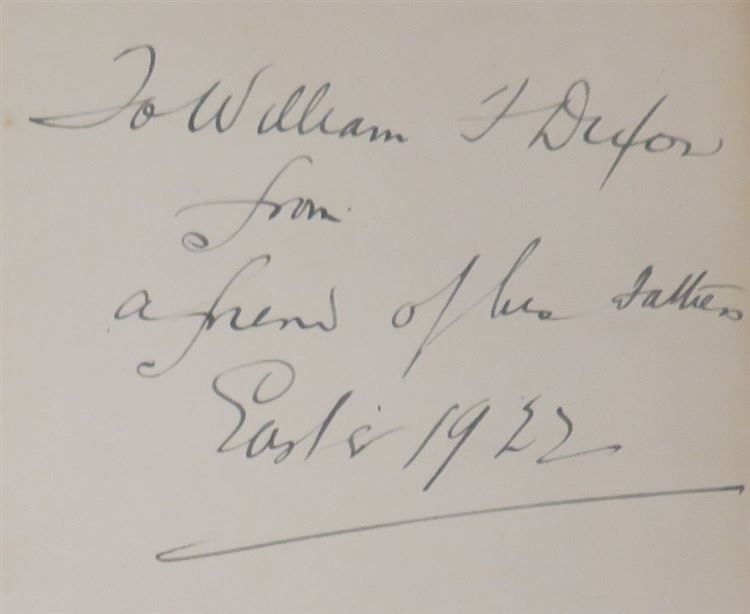 To William F Dixon
from
a friend of his Fathers
Easter 1922